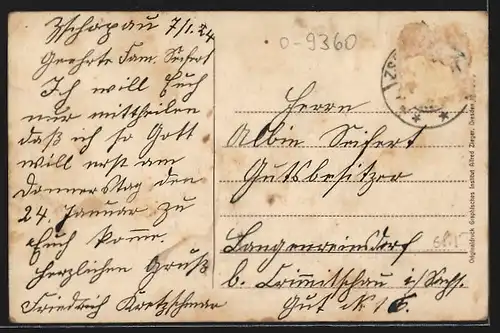 Zschopau 7/1.24
Geehrte Fam. Seifert
Ich will Euch
nur mittheilen
daß ich so Gott
will erst am
Donnerstag den
24. Januar zu
Euch komme.
Herzlichen Gruß
Friedrich Kretzschmar
0-9360
Herrn
Albin Seifert
Gutsbesitzer
Langenreinsdorf
b. Crimmitschau i/Sachs.
Gut № 16.
Originaldruck Graphisches Institut Alfred Zieger, Dresden